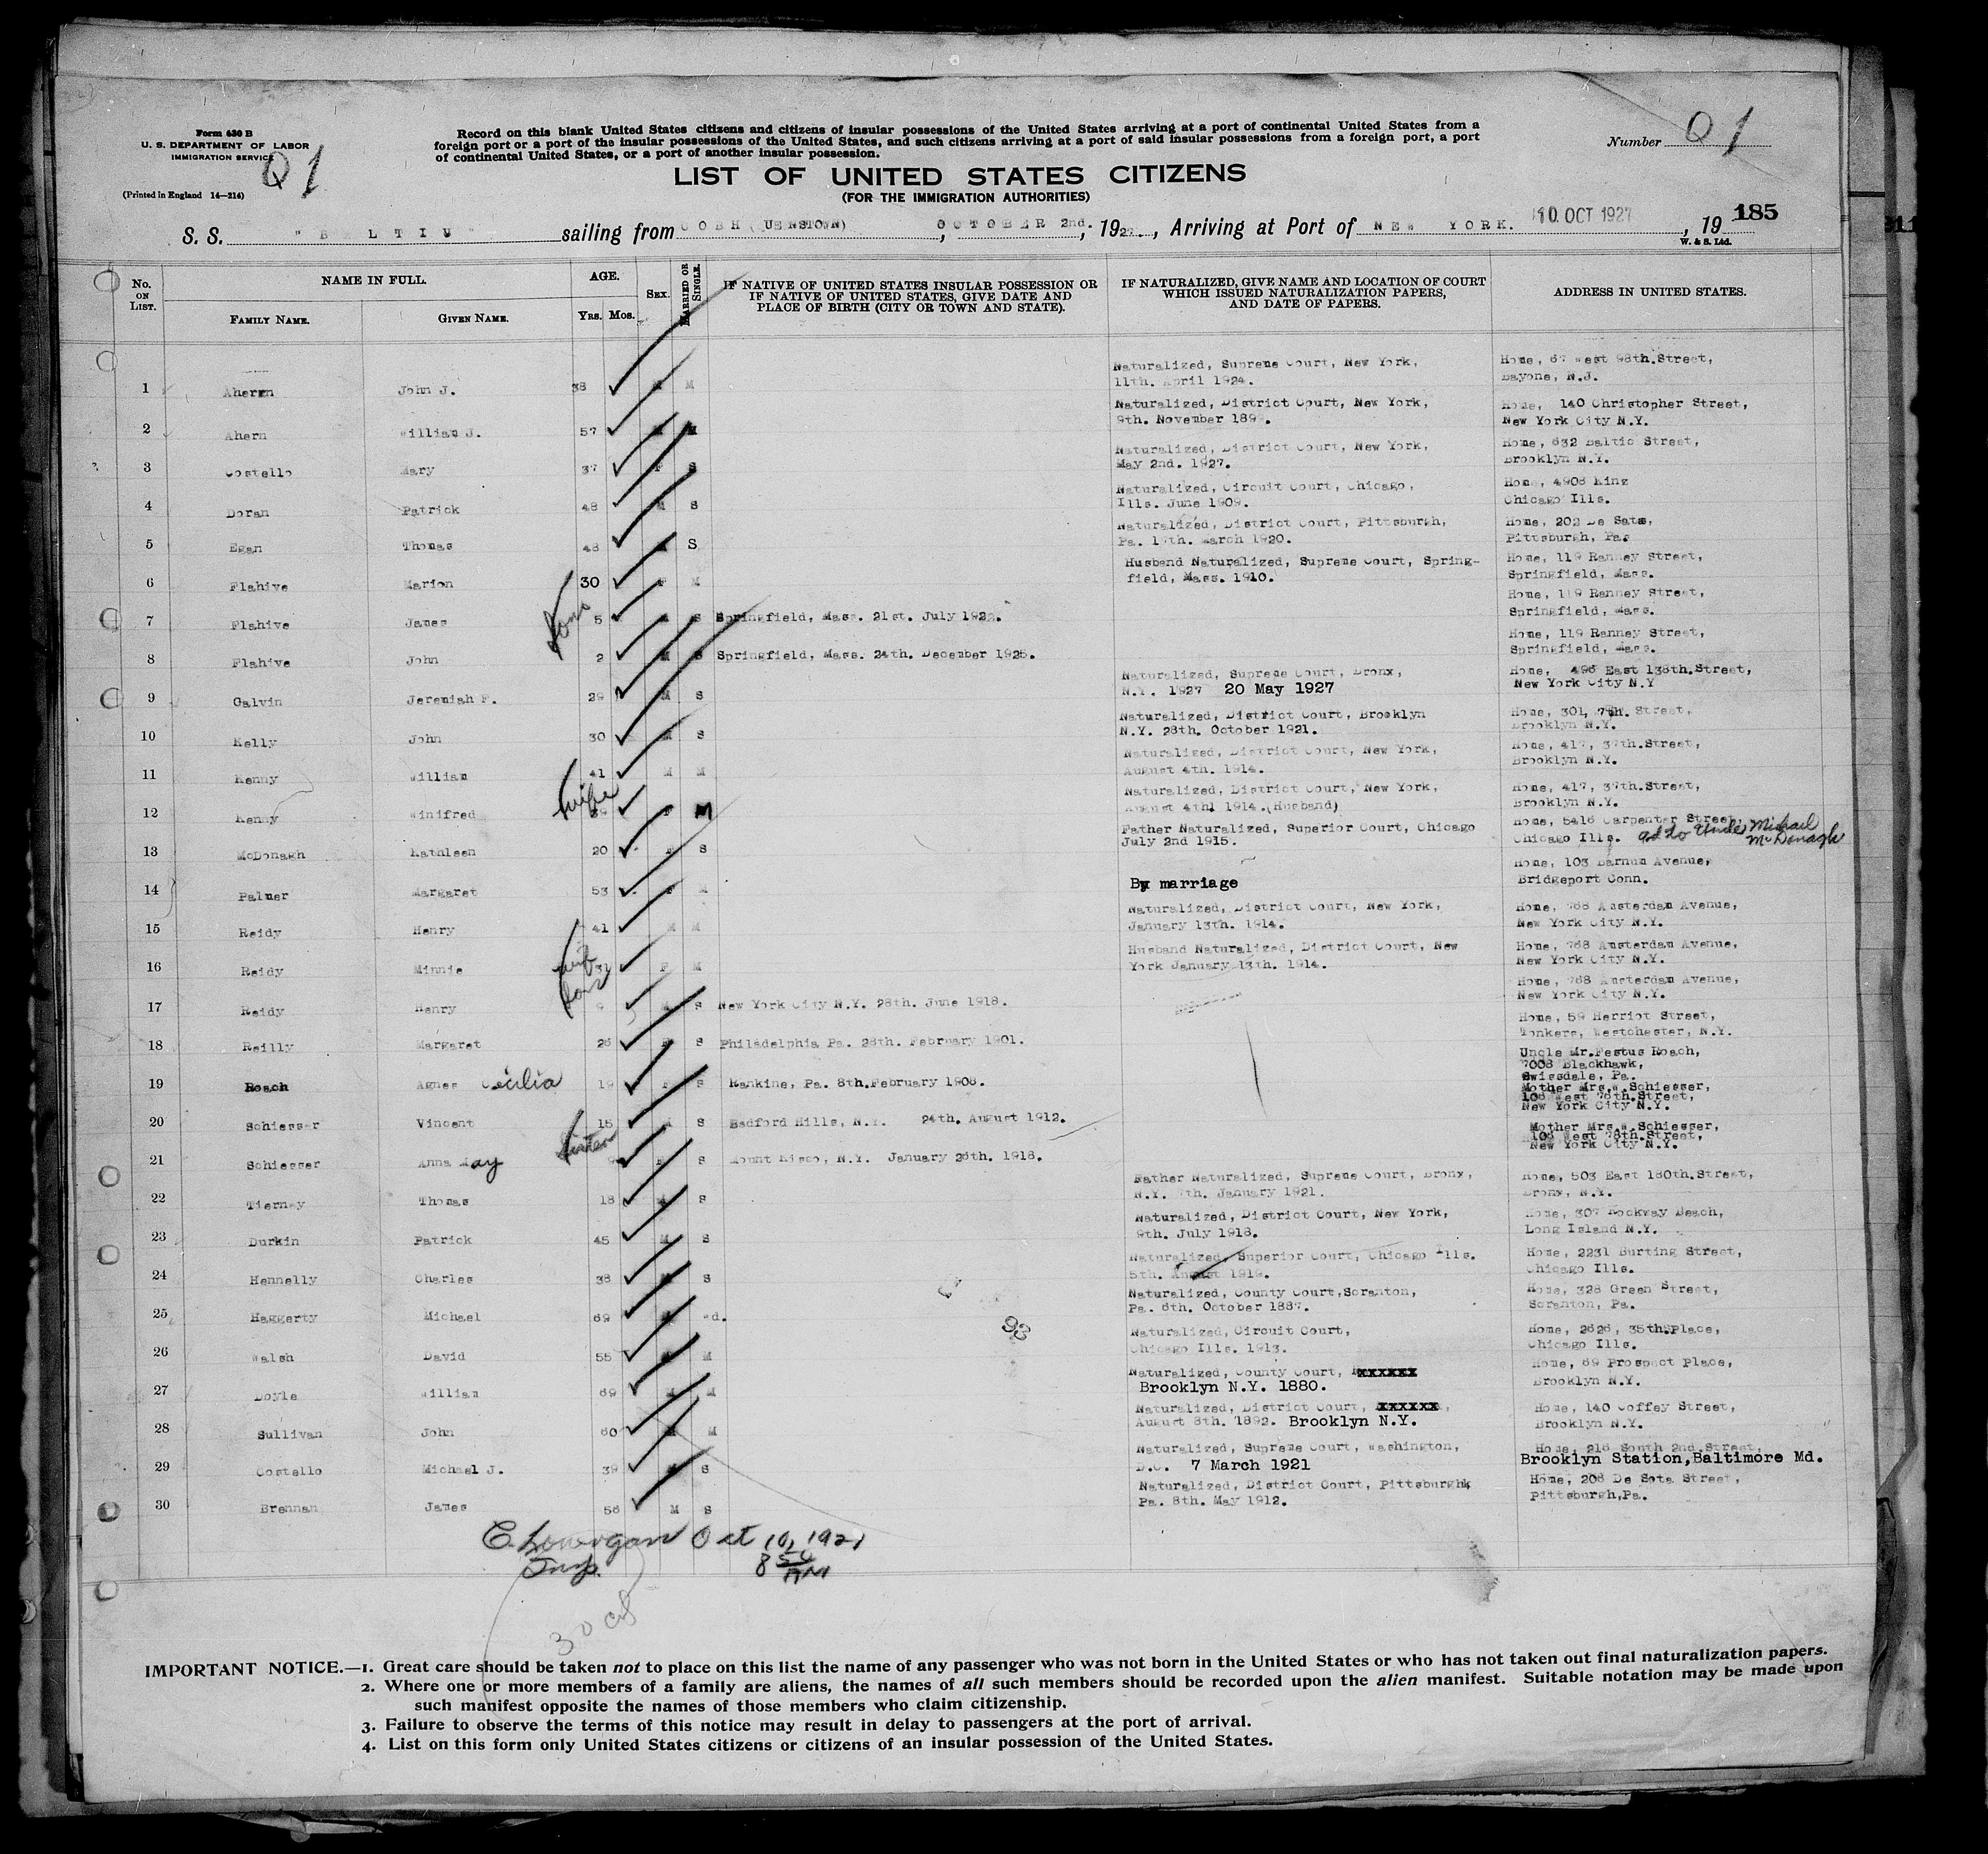 Form 630 B
U. S. DEPARTMENT OF LABOR
IMMIGRATION SERVICE
(Printed in England 14—214)
Q1
Record on this blank United States citizens and citizens of insular possessions of the United States arriving at a port of continental United States from a
foreign port or a port of the insular possessions of the United States, and such citizens arriving at a port of said insular possessions from a foreign port, a port
of continental United States, or a port of another insular possession.
Number Q1
LIST OF UNITED STATES CITIZENS
(FOR THE IMMIGRATION AUTHORITIES)
S. S. sailing from COBH OCTOBER 2nd. , 1927, Arriving at Port of NEW YORK. 10 OCT 1927, 19 185
W. & S. Ltd.
No. ON LIST. NAME IN FULL. FAMILY NAME. GIVEN NAME. AGE. YRS. MOS. SEX. MARRIED OR SINGLE. IF NATIVE OF UNITED STATES INSULAR POSSESSION OR IF NATIVE OF UNITED STATES, GIVE DATE AND PLACE OF BIRTH (CITY OR TOWN AND STATE). IF NATURALIZED, GIVE NAME AND LOCATION OF COURT WHICH ISSUED NATURALIZATION PAPERS, AND DATE OF PAPERS. ADDRESS IN UNITED STATES.
1 Ahern John J. 38 M M Naturalized, Supreme Court, New York, 11th. April 1924. Home, 67 West 98th.Street, Bayone, N.J.
2 Ahern William J. 57 M M Naturalized, District Court, New York, 9th. November Home, 140 Christopher Street, New York City N.Y.
3 Costello Mary 37 F S Naturalized, District Court, New York, May 2nd. 1927. Home, 632 Baltic Street, Brooklyn N.Y.
4 Doran Patrick 48 M S Naturalized, Circuit Court, Chicago, Ills. June 1909. Home, 4908 King Chicago Ills.
5 Egan Thomas 48 M S Naturalized, District Court, Pittsburgh, Pa. March 1920. Home, 202 De Sota, Pittsburgh, Pa.
6 Flahive Marion 30 F M Husband Naturalized, Supreme Court, Spring-field, Mass. 1910. Home, 119 Ranney Street, Springfield, Mass.
7 Flahive James sons 5 M S Springfield, Mass. 21st. July 1922. Home, 119 Ranney Street, Springfield, Mass.
8 Flahive John 2 M S Springfield, Mass. 24th. December 1925. Home, 119 Ranney Street, Springfield, Mass.
9 Galvin Jeremiah F. 29 M S Naturalized, Supreme Court, Bronx, N.Y. 1927 20 May 1927 Home, 496 East 138th.Street, New York City N.Y
10 Kelly John 30 M S Naturalized, District Court, Brooklyn N.Y. 28th. October 1921. Home, 301, 7th. Street, Brooklyn N.Y.
11 Kenny William 41 M M Naturalized, District Court, New York, August 4th. 1914. Home, 417, 37th.Street, Brooklyn N.Y.
12 Kenny Winifred wife 39 F M Naturalized, District Court, New York, August 4th 1914.(Husband) Home, 417, 37th.Street, Brooklyn N.Y.
13 McDonagh Kathleen 20 F S Father Naturalized, Superior Court, Chicago July 2nd 1915. Home, 5416 Carpenter Street, Chicago Ills. gd to Uncle Michael McDonagh
14 Palmer Margaret 53 F M By marriage Home, 103 Barnum Avenue, Bridgeport Conn.
15 Reidy Henry 41 M M Naturalized, District Court, New York, January 13th. 1914. Home, 768 Amsterdam Avenue, New York City N.Y.
16 Reidy Minnie wife F M Husband Naturalized, District Court, New York January 13th. 1914. Home, 768 Amsterdam Avenue, New York City N.Y.
17 Reidy Henry son 9 M S New York City N.Y. 28th. June 1918. Home, 768 Amsterdam Avenue, New York City N.Y.
18 Reilly Margaret 26 F S Philadelphia Pa. 28th. February 1901. Home, 59 Herriot Street, Yonkers, Westchester, N.Y.
19 Roach Agnes Cecilia 19 F S Rankine, Pa. 8th.February 1908. Uncle Mr.Festus Roach, 7008 Blackhawk, Swissdale, Pa.
20 Schiesser Vincent 15 M S Bedford Hills, N.Y. 24th. August 1912. Mother Mrs.W.Schiesser, 106 West 76th.Street, New York City N.Y.
21 Schiesser Anna May sister 9 F S Mount Kisco, N.Y. January 26th. 1918. Mother Mrs.W.Schiesser, 106 West 76th.Street, New York City N.Y.
22 Tierney Thomas 18 M S Father Naturalized, Supreme Court, Bronx, N.Y. 7th. January 1921. Home, 503 East 180th.Street, Bronx, N.Y.
23 Durkin Patrick 45 M S Naturalized, District Court, New York, 9th. July 1918. Home, 307 Rockway Beach, Long Island N.Y.
24 Hennelly Charles 38 M S Naturalized, Superior Court, Chicago Ills. 5th. August 1919. Home, 2231 Burting Street, Chicago Ills.
25 Haggerty Michael 69 M Wd. Naturalized, County Court,Scranton, Pa. 6th. October 1887. Home, 328 Green Street, Scranton, Pa.
93
26 Walsh David 55 M M Naturalized, Circuit Court, Chicago Ills. 1913. Home, 2626, 35th.Place, Chicago Ills.
27 Doyle William 69 M M Naturalized, County Court, xxxxxx Brooklyn N.Y. 1880. Home, 69 Prospect Place, Brooklyn N.Y.
28 Sullivan John 60 M M Naturalized, District Court, xxxxxx, August 8th. 1892. Brooklyn N.Y. Home, 140 Coffey Street, Brooklyn N.Y.
29 Costello Michael J. 39 M S Naturalized, Supreme Court, Washington, D.C. 7 March 1921 Home, 216 South 2nd.Street, Brooklyn Station,Baltimore Md.
30 Brennan James 56 M S Naturalized, District Court, Pittsburgh, Pa. 8th. May 1912. Home, 208 De Sota Street, Pittsburgh,Pa.
Oct 10, 1927
Insp. 8 50 AM
IMPORTANT NOTICE.—1. Great care should be taken not to place on this list the name of any passenger who was not born in the United States or who has not taken out final naturalization papers.
2. Where one or more members of a family are aliens, the names of all such members should be recorded upon the alien manifest. Suitable notation may be made upon
such manifest opposite the names of those members who claim citizenship.
3. Failure to observe the terms of this notice may result in delay to passengers at the port of arrival.
4. List on this form only United States citizens or citizens of an insular possession of the United States.